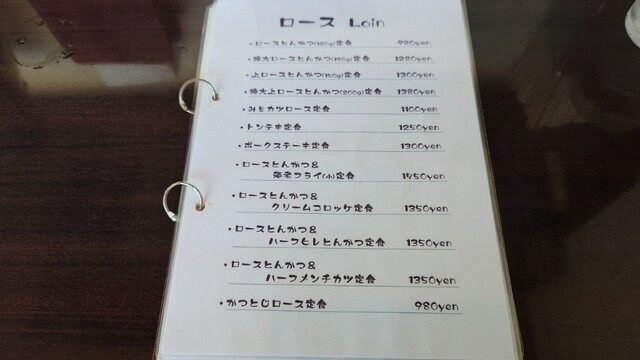 ロース Loin
・ロースとんかつ(130g)定食 980yen
・特大ロースとんかつ(190g)定食 1280yen
・上ロースとんかつ(150g)定食 1300yen
・特大上ロースとんかつ(200g)定食 1380yen
・みそカツロース定食 1100yen
・トンテキ定食 1250yen
・ポークステーキ定食 1300yen
・ロースとんかつ&
海老フライ(小)定食 1450yen
・ロースとんかつ&
クリームコロッケ定食 1350yen
・ロースとんかつ&
ハーフヒレとんかつ定食 1350yen
・ロースとんかつ&
ハーフメンチカツ定食 1350yen
・かつとじロース定食 980yen